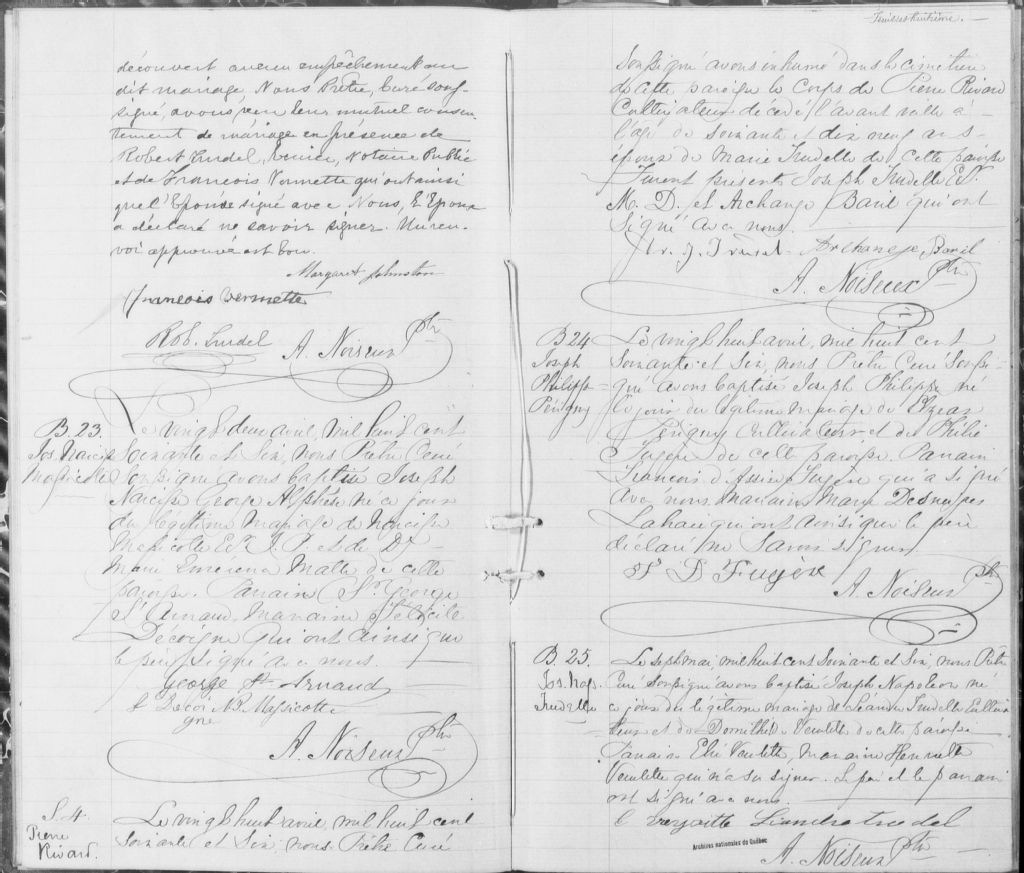 découvert aucun empêchement au
dit mariage, Nous Prêtre, Curé sous-
signé, avons reçu leur mutuel consen-
tement de mariage en présence de
Robert Trudel, Notaire Public
et de François Vermette qui ont ainsi
que l'Epouse signé avec Nous, L'Epoux
a déclaré ne savoir signer. Un ren-
voi approuvé est bon.
Margaret Johnston
françois vermette
Rob. Trudel A. Noiseux Ptre
B. 23.
Jos. Narcisse
Massicotte
Le vingt deux avril, mil huit cent
Soixante et Six, nous Prêtre Curé
Soussigné avons baptisé Joseph
Narcisse George Alphée né ce jour
du légitime mariage de Narcisse
Massicotte Ecr J. P. et de De
Marie Malte de cette
paroisse. Parrain St. George
St Arnaud, Marraine
Decoigne qui ont ainsi que
le père signé avec nous.
George St Arnaud
N. Massicotte
A. Noiseux Ptre
S. 4.
Pierre
Rivard.
Le vingt huit avril, mil huit cent
Soixante et Six, nous Prêtre Curé
Feuillet huitième. —
Soussigné avons inhumé dans le cimetière
de cette paroisse le Corps de Pierre Rivard
Cultivateur décédé l'avant veille à
l'âge de Soixante et dix neuf ans
époux de Marie Trudelle de cette paroisse
Furent présents Joseph Trudelle Ecr.
M. D. et Archange Baril qui ont
Signé avec nous.
J. Trudel Archange Baril
A. Noiseux Ptre
B 24
Joseph
Philippe
Périgny
Le vingt huit avril, mil huit cent
Soixante et Six, nous Prêtre Curé Soussi-
gné avons baptisé Joseph Philippe né
ce jour du légitime mariage de Elzear
Périgny Cultivateur et de Philie
Fugère de cette paroisse. Parrain
François d'Assise Fugère qui a signé
avec nous, marraine Marie Desneiges
Lahaie qui ont ainsi que le père
déclaré ne Savoir signer
F D Fugere
A. Noiseux Ptre
B. 25.
Jos. Nap.
Trudelle
Le sept mai, mil huit cent Soixante et Six, nous Prêtre
Curé Soussigné avons baptisé Joseph Napoléon né
ce jour du légitime mariage de Léandre Trudelle Cultiva
teur et de Domithilde Veillette de cette paroisse
Parrain Elie Veillette, marraine Henriette
Veillette qui n'a su signer. Le père et le parrain
ont signé avec nous.
Léandre trudel
Archives nationales du Québec
A. Noiseux Ptre